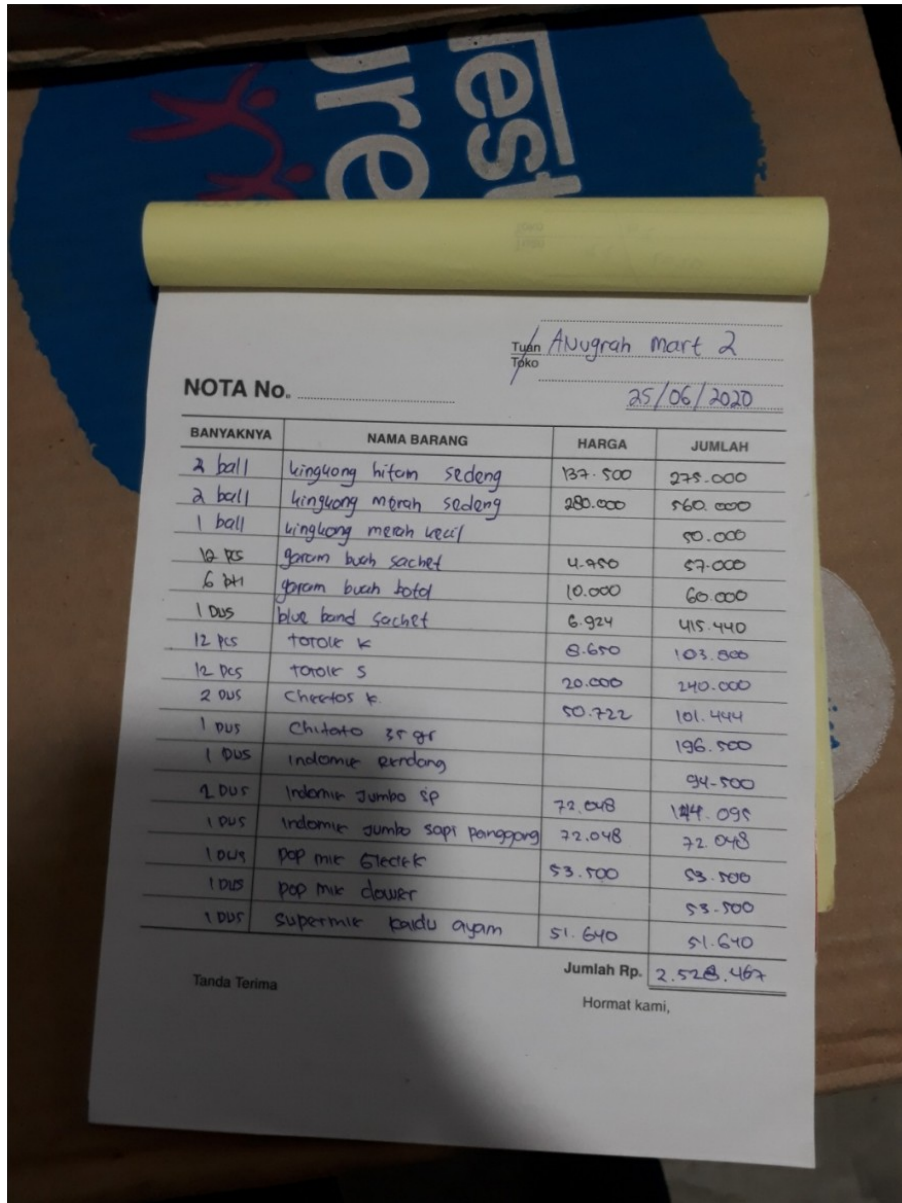 Nest
ure
Tuan Anugrah mart 2
Toko
NOTA No.
25/06/2020
BANYAKNYA NAMA BARANG HARGA JUMLAH
2 ball kingkong hitam sedeng 137.500 275.000
2 ball kingkong merah sedeng 280.000 560.000
1 ball kingkong merah kecil 50.000
12 pcs garam buah sachet 4.750 57.000
6 btl garam buah botol 10.000 60.000
1 Dus blue band sachet 6.924 415.440
12 pcs Totole K 8.650 103.800
12 pcs Totole S 20.000 240.000
2 Dus Cheetos k 50.722 101.444
1 Dus Chitato 35 gr 196.500
1 Dus Indomie Rendang 94.500
2 Dus Indomie Jumbo sp 72.048 144.095
1 Dus Indomie Jumbo sapi panggang 72.048 72.048
1 Dus pop mie Gledek 53.500 53.500
1 Dus pop mie dower 53.500
1 Dus supermie kaldu ayam 51.640 51.640
Jumlah Rp. 2.528.467
Tanda Terima Hormat kami,